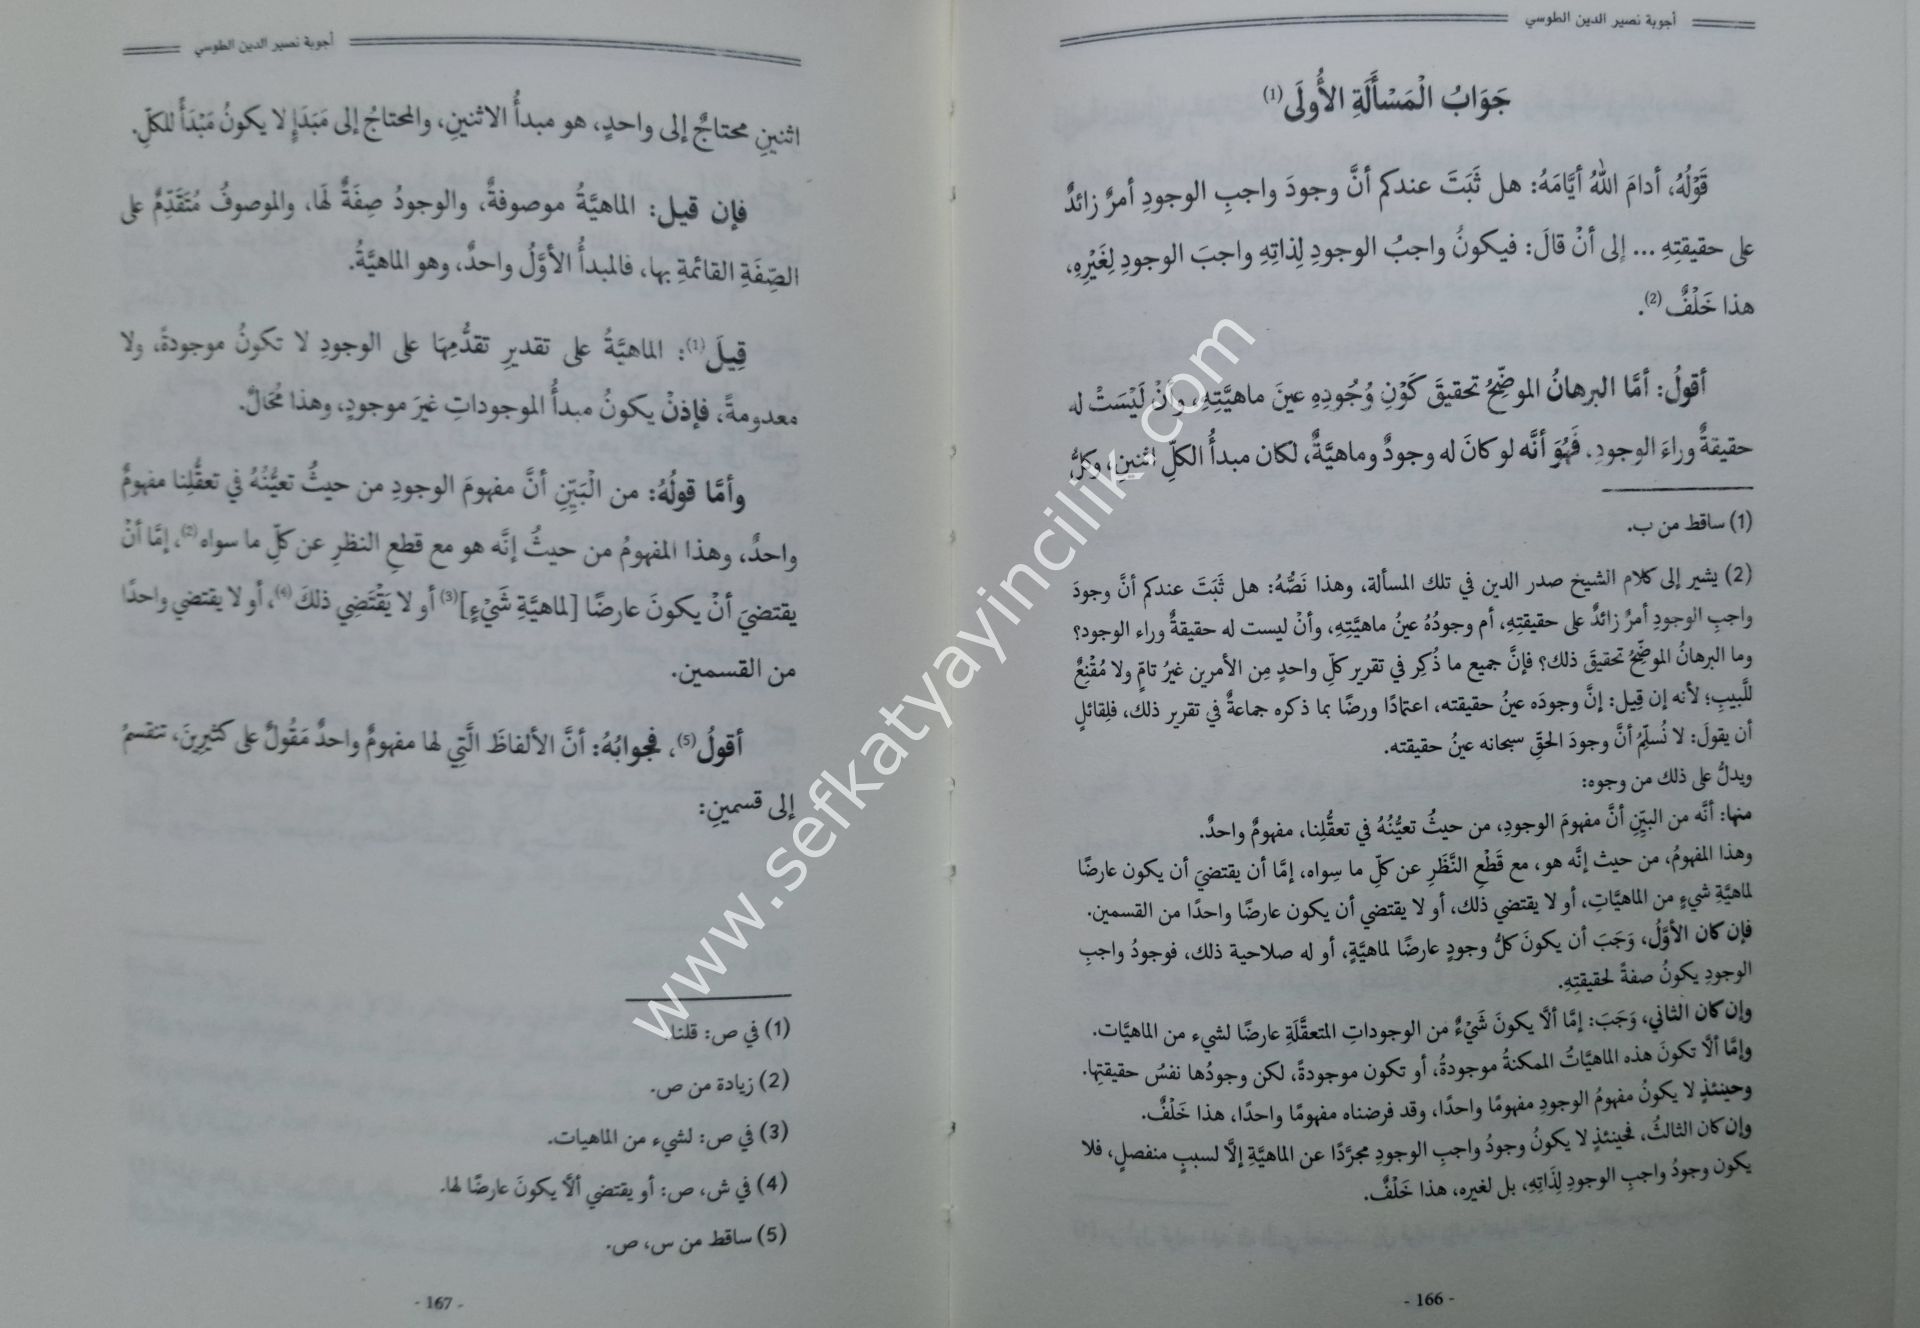 أجوبة نصير الدين الطوسي
جَوَابُ الْمَسْأَلَةِ الأُولَى (1)
قَوْلُهُ، أدامَ اللهُ أيَّامَهُ: هل ثَبَتَ عندكم أنَّ وجودَ واجبِ الوجودِ أمرٌ زائدٌ
على حقيقتِهِ ... إلى أنْ قالَ: فيكونُ واجبُ الوجودِ لِذاتِهِ واجبَ الوجودِ لِغَيْرِهِ،
هذا خَلْفٌ (2).
أقولُ: أمَّا البرهانُ الموضِّحُ تحقيقَ كَوْنِ وُجُودِهِ عينَ ماهيَّتِهِ، وأنْ لَيْسَتْ له
حقيقةٌ وراءَ الوجودِ. فَهُوَ أنَّه لو كانَ له وجودٌ وماهيَّةٌ، لكان مبدأُ الكلِّ اثنينِ، وكلُّ
(1) ساقط من ب.
(2) يشير إلى كلام الشيخ صدر الدين في تلك المسألة، وهذا نَصُّهُ: هل ثَبَتَ عندكم أنَّ وجودَ
واجبِ الوجودِ أمرٌ زائدٌ على حقيقتِهِ، أم وجودُهُ عينُ ماهيَّتِهِ، وأنْ ليست له حقيقةٌ وراء الوجود؟
وما البرهانُ الموضِّحُ تحقيقَ ذلك؟ فإنَّ جميع ما ذُكِر في تقرير كلِّ واحدٍ مِن الأمرين غيرُ تامٍّ ولا مُقْنِعٌ
للَّبيبِ؛ لأنه إن قِيل: إنَّ وجودَه عينُ حقيقته، اعتمادًا ورضًا بما ذكره جماعةٌ في تقرير ذلك، فلِقائلٍ
أن يقولَ: لا نُسلِّمُ أنَّ وجودَ الحقِّ سبحانه عينُ حقيقته.
ويدلُّ على ذلك من وجوه:
منها: أنَّه من البيِّنِ أنَّ مفهومَ الوجودِ، من حيثُ تعيُّنُهُ في تعقُّلِنا، مفهومٌ واحدٌ.
وهذا المفهومُ، من حيث إنَّه هو، مع قَطْعِ النَّظَرِ عن كلِّ ما سِواه، إمَّا أن يقتضيَ أن يكون عارضًا
لماهيَّةِ شيءٍ من الماهيَّاتِ، أو لا يقتضي ذلك، أو لا يقتضي أن يكون عارضًا واحدًا من القسمين.
فإن كان الأوَّلُ، وَجَبَ أن يكونَ كلُّ وجودٍ عارضًا لماهيَّةٍ، أو له صلاحية ذلك، فوجودُ واجبِ
الوجودِ يكونُ صفةً لحقيقتِهِ.
وإن كان الثاني، وَجَبَ: إمَّا ألَّا يكونَ شَيْءٌ من الوجوداتِ المتعقَّلَةِ عارضًا لشيء من الماهيَّات.
وإمَّا ألَّا تكونَ هذه الماهيَّاتُ الممكنةُ موجودةً، أو تكون موجودةً، لكن وجودُها نفسُ حقيقتِها.
وحينئذٍ لا يكونُ مفهومُ الوجودِ مفهومًا واحدًا، وقد فرضناه مفهومًا واحدًا، هذا خَلْفٌ.
وإن كان الثالثُ، فحينئذٍ لا يكونُ وجودُ واجبِ الوجودِ مجرَّدًا عن الماهيَّةِ إلَّا لسببٍ منفصلٍ، فلا
يكون وجودُ واجبِ الوجودِ لِذَاتِهِ، بل لغيره، هذا خَلْفٌ.
- 166 -
أجوبة نصير الدين الطوسي
اثنينِ محتاجٌ إلى واحدٍ، هو مبدأُ الاثنينِ، والمحتاجُ إلى مَبَدَإٍ لا يكونُ مَبْدَأً للكلِّ.
فإن قيل: الماهيَّةُ موصوفةٌ، والوجودُ صِفَةٌ لَها، والموصوفُ مُتَقَدِّمٌ على
الصِّفَةِ القائمةِ بها، فالمبدأُ الأوَّلُ واحدٌ، وهو الماهيَّةُ.
قِيلَ (1): الماهيَّةُ على تقديرِ تقدُّمِهَا على الوجودِ لا تكونُ موجودةً، ولا
معدومةً، فإذنْ يكونُ مبدأُ الموجوداتِ غيرَ موجودٍ، وهذا مُحَالٌ.
وأمَّا قولُهُ: من الْبَيِّنِ أنَّ مفهومَ الوجودِ من حيثُ تعيُّنُهُ في تعقُّلِنا مفهومٌ
واحدٌ، وهذا المفهومُ من حيثُ إنَّه هو مع قطعِ النظرِ عن كلِّ ما سواه (2)، إمَّا أنْ
يقتضيَ أنْ يكونَ عارضًا [لماهيَّةِ شَيْءٍ] (3) أو لا يَقْتَضِي ذلكَ (4)، أو لا يقتضي واحدًا
من القسمين.
أقولُ (5)، فجوابُهُ: أنَّ الألفاظَ الَّتِي لها مفهومٌ واحدٌ مَقُولٌ على كثيرِينَ، تنقسمُ
إلى قسمينِ:
(1) في ص: قلنا.
(2) زيادة من ص.
(3) في ص: لشيء من الماهيات.
(4) في ش، ص: أو يقتضي ألَّا يكونَ عارضًا لها.
(5) ساقط من س، ص.
- 167 -
www.sefkatyayincilik.com